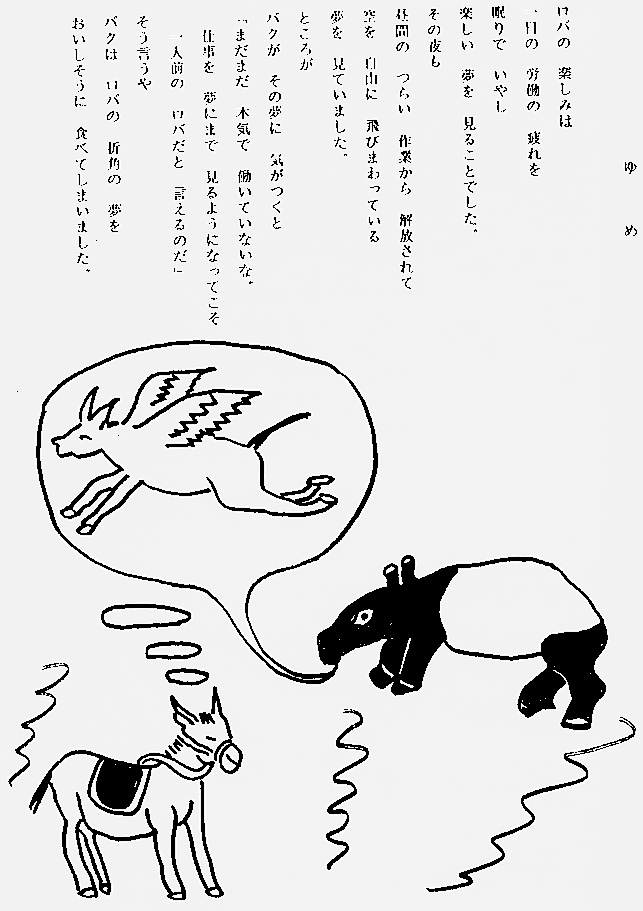 ゆめ
ロバの 楽しみは
一日の 労働の 疲れを
眠りで いやし
楽しい 夢を 見ることでした。
その夜も
昼間の つらい 作業から 解放されて
空を 自由に 飛びまわっている
夢を 見ていました。
ところが
バクが その夢に 気がつくと
「まだまだ 本気で 働いていないな。
仕事を 夢にまで 見るようになってこそ
一人前の ロバだと 言えるのだ」
そう言うや
バクは ロバの 折角の 夢を
おいしそうに 食べてしまいました。